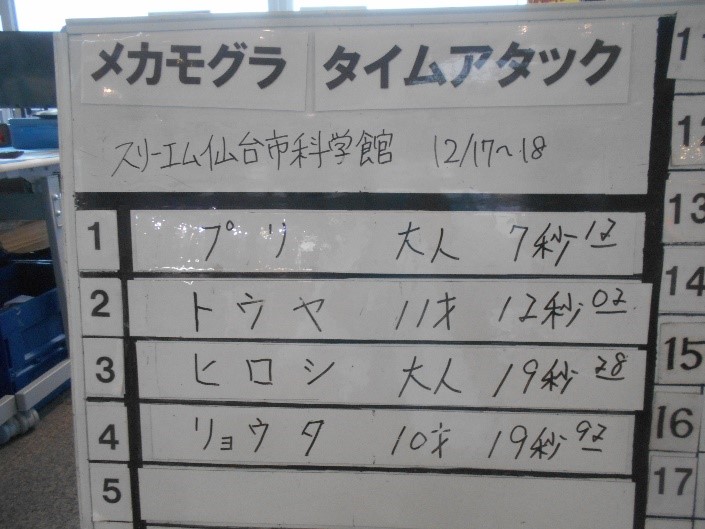 メカモグラ タイムアタック
スリーエム仙台市科学館 12/17〜18
1 プリ 大人 7秒12
2 トウヤ 11才 12秒02
3 ヒロシ 大人 19秒28
4 リョウタ 10才 19秒92
5
11
12
13
14
15
16
17